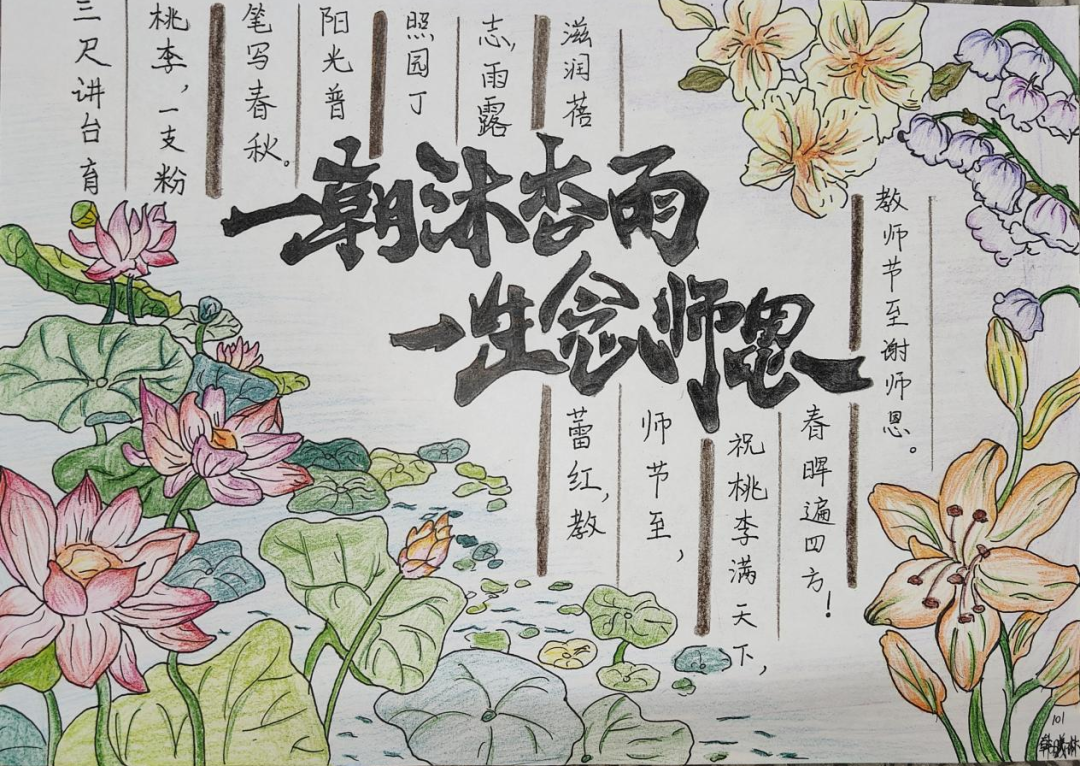 三尺讲台育
桃李，一支粉
笔写春秋。
阳光普
照园丁
志，雨露
滋润蓓
一朝沐杏雨
一生念师恩
蕾红，教
师节至，
祝桃李满天下，
春晖遍四方！
教师节至谢师恩。
101